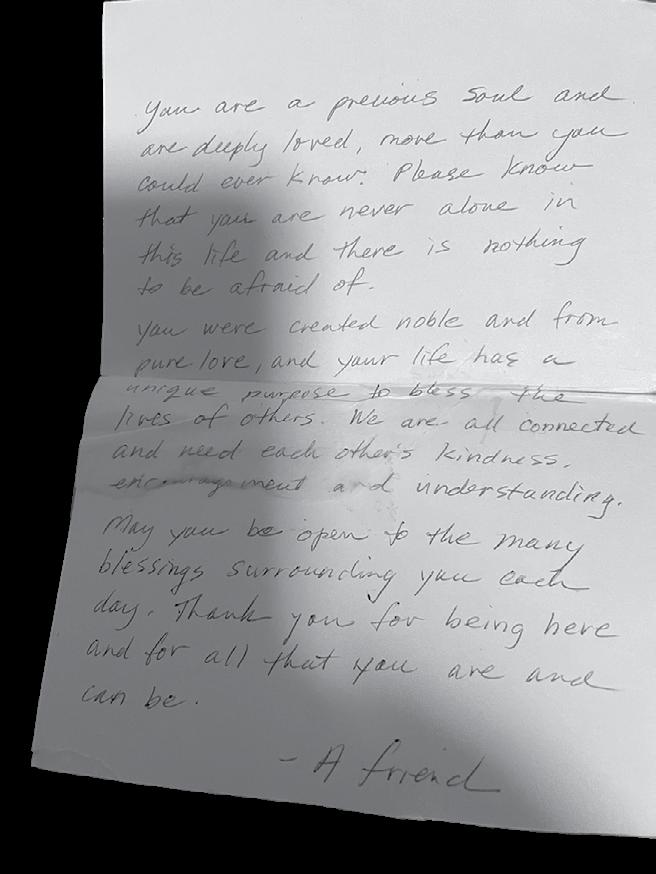 You are a precious soul and
are deeply loved, more than you
could ever know. Please know
that you are never alone in
this life and there is nothing
to be afraid of.
You were created noble and from
pure love, and your life has a
unique purpose to bless the
lives of others. We are all connected
and need each other's kindness,
encouragement and understanding.
May you be open to the many
blessings surrounding you each
day. Thank you for being here
and for all that you are and
can be.
- A friend